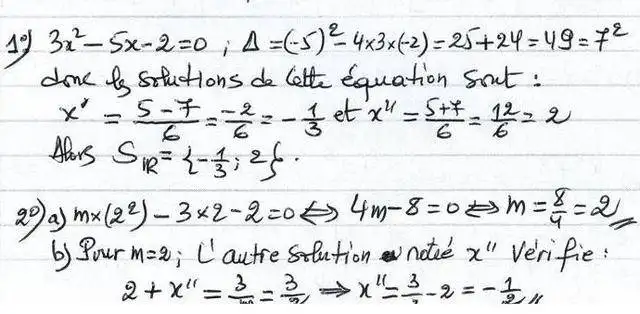 1°) 3x² - 5x - 2 = 0 ; Δ = (-5)² - 4×3×(-2) = 25 + 24 = 49 = 7²
donc les solutions de cette équation sont :
x' = (5-7)/6 = -2/6 = -1/3 et x'' = (5+7)/6 = 12/6 = 2
Alors S_IR = {-1/3 ; 2}.
2°) a) m×(2²) - 3×2 - 2 = 0 ⇔ 4m - 8 = 0 ⇔ m = 8/4 = 2
b) Pour m=2 ; L'autre solution notée x'' vérifie :
2 + x'' = 3/m = 3/2 ⇒ x'' = 3/2 - 2 = -1/2